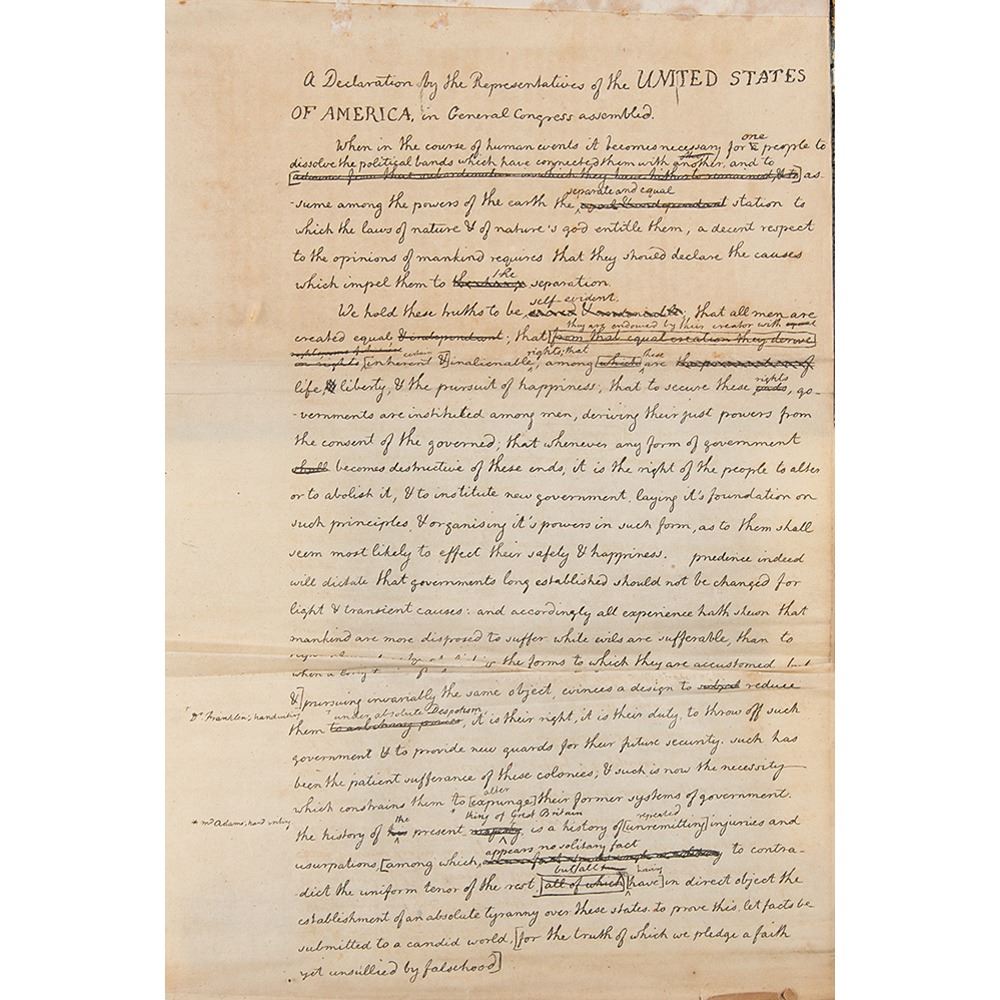 A Declaration by the Representatives of the UNITED STATES
OF AMERICA, in General Congress assembled.
one
When in the course of human events it becomes necessary for a people to
dissolve the political bands which have connected them with another, and to
[advance from that subordination in which they have hitherto remained, & to] as-
separate and equal
-sume among the powers of the earth the equal & independant station to
which the laws of nature & of nature's god entitle them, a decent respect
to the opinions of mankind requires that they should declare the causes
the
which impel them to the change separation.
self evident.
We hold these truths to be sacred & undeniable; that all men are
they are endowed by their creator with equal
created equal & independant; that [from that equal creation they derive
certain rights; that these
in rights [inherent &] inalienable, among [which] are the preservation of
rights
life, & liberty, & the pursuit of happiness; that to secure these ends, go-
-vernments are instituted among men, deriving their just powers from
the consent of the governed; that whenever any form of government
shall becomes destructive of these ends, it is the right of the people to alter
or to abolish it, & to institute new government, laying it's foundation on
such principles, & organising it's powers in such form, as to them shall
seem most likely to effect their safety & happiness. prudence indeed
will dictate that governments long established should not be changed for
light & transient causes: and accordingly all experience hath shewn that
mankind are more disposed to suffer while evils are sufferable, than to
the forms to which they are accustomed. but
when a long
&] pursuing invariably the same object, evinces a design to subject reduce
* Dr Franklin's handwriting
* under absolute Despotism
them to arbitrary power, it is their right, it is their duty, to throw off such
government & to provide new guards for their future security. such has
been the patient sufferance of these colonies; & such is now the necessity
alter
which constrains them to [expunge] their former systems of government.
* mr Adams' hand writing
the * king of Great Britain repeated
the history of his present majesty, is a history of [unremitting] injuries and
appears no solitary fact
usurpations, [among which, to contra-
but all having
-dict the uniform tenor of the rest, [all of which] [have] in direct object the
establishment of an absolute tyranny over these states. to prove this, let facts be
submitted to a candid world, [for the truth of which we pledge a faith
yet unsullied by falsehood]